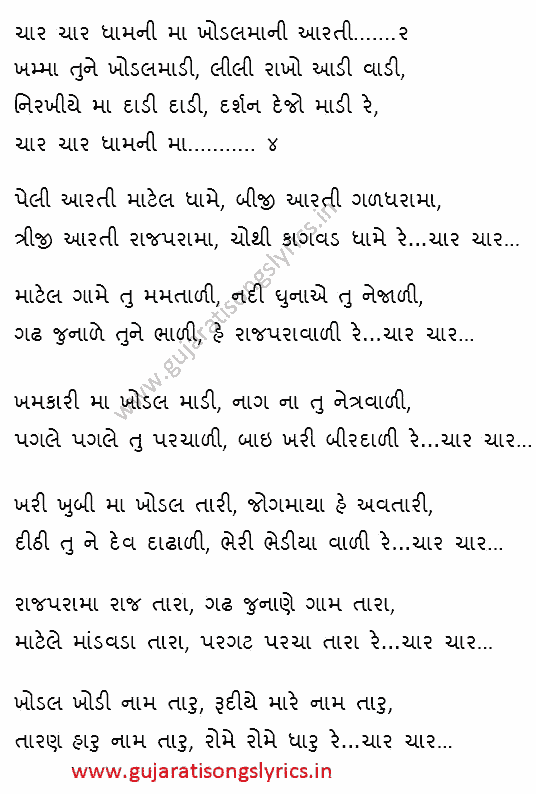 ચાર ચાર ધામની મા ખોડલમાની આરતી.......૨
ખમ્મા તુને ખોડલમાડી, લીલી રાખો આડી વાડી,
નિરખીયે મા દાડી દાડી, દર્શન દેજો માડી રે,
ચાર ચાર ધામની મા........... ૪
પેલી આરતી માટેલ ધામે, બીજી આરતી ગળધરામા,
ત્રીજી આરતી રાજપરામા, ચોથી કાગવડ ધામે રે...ચાર ચાર...
માટેલ ગામે તુ મમતાળી, નદી ધુનાએ તુ નેજાળી,
ગઢ જુનાળે તુને ભાળી, હે રાજપરાવાળી રે...ચાર ચાર...
ખમકારી મા ખોડલ માડી, નાગ ના તુ નેત્રવાળી,
પગલે પગલે તુ પરચાળી, બાઇ ખરી બીરદાળી રે...ચાર ચાર...
ખરી ખુબી મા ખોડલ તારી, જોગમાયા હે અવતારી,
દીઠી તુ ને દેવ દાઢાળી, ભેરી ભેડીયા વાળી રે...ચાર ચાર...
રાજપરામા રાજ તારા, ગઢ જુનાણે ગામ તારા,
માટેલે માંડવડા તારા, પરગટ પરચા તારા રે...ચાર ચાર...
ખોડલ ખોડી નામ તારુ, રૂદીયે મારે નામ તારુ,
તારણ હારુ નામ તારુ, રોમે રોમે ધારુ રે...ચાર ચાર...
www.gujaratisongslyrics.in
www.gujaratisongslyrics.in